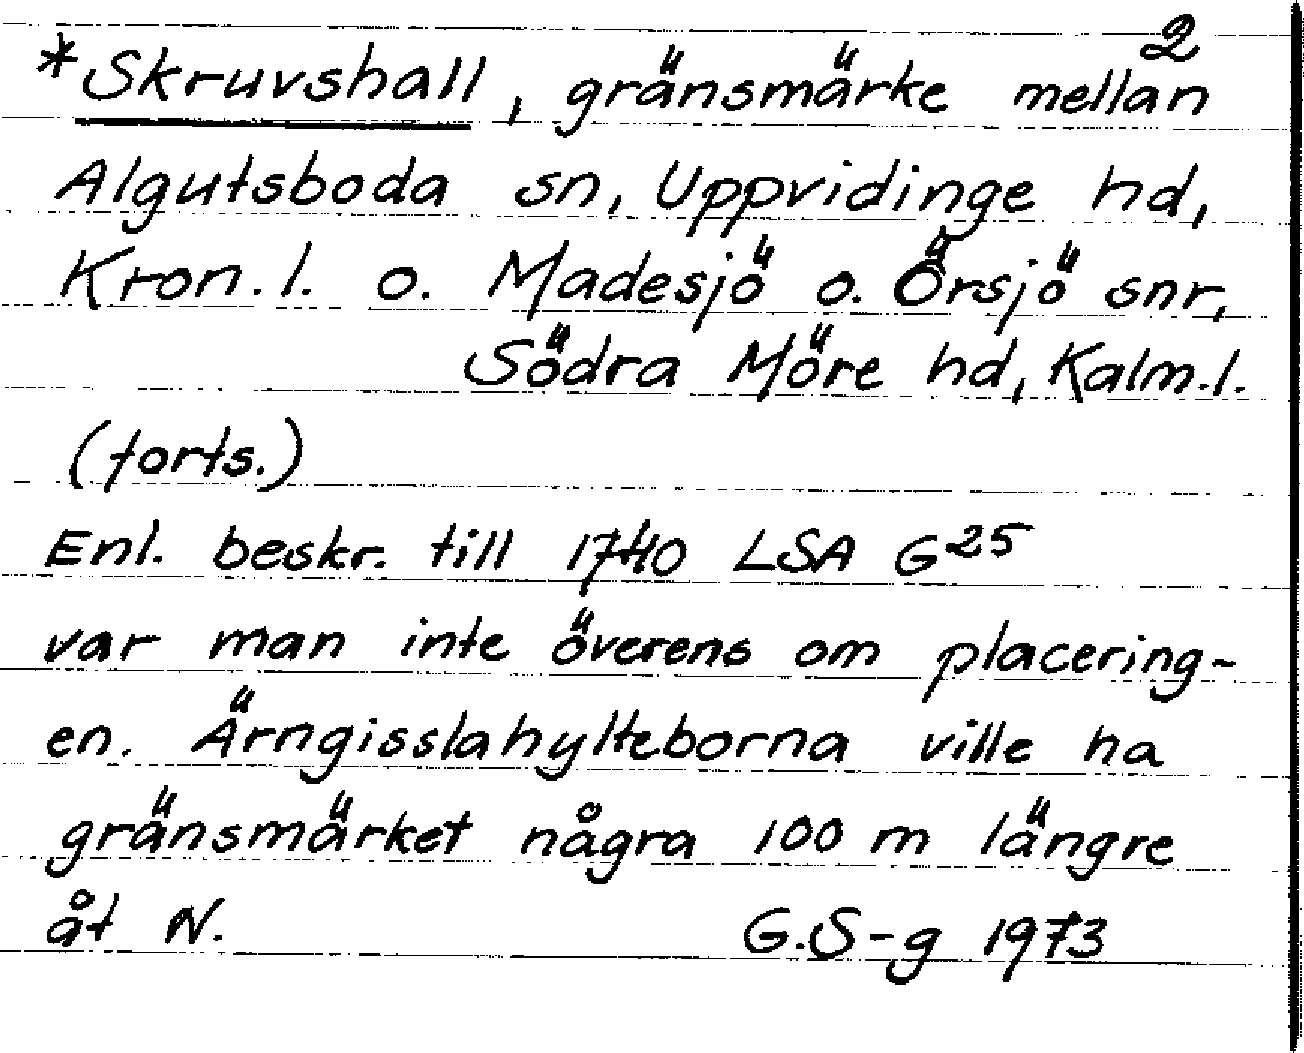 2
*Skruvshall, gränsmärke mellan
Algutsboda sn, Uppvidinge hd,
Kron.l. o. Madesjö o. Örsjö snr,
Södra Möre hd, Kalm.l.
(forts.)
Enl. beskr. till 1740 LSA G25
var man inte överens om placering-
en. Ärngisslahylteborna ville ha
gränsmärket några 100 m längre
åt N. G.S-g 1973